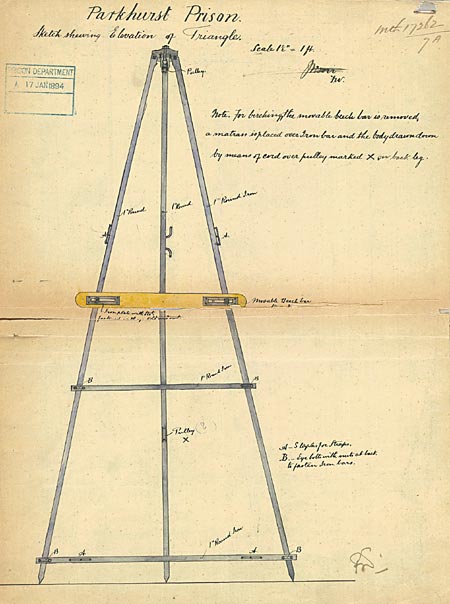 Parkhurst Prison.
Sketch shewing Elevation of Triangle.
Scale 1½" = 1 ft.
PRISON DEPARTMENT
17 JAN 1894
Pulley
Note. For birching the movable beech bar is removed,
a matrass is placed over Iron bar and the body drawn down
by means of cord over pulley marked X on back leg.
1" Round
1" Round
1" Round Iron
A
A
Movable Beech bar
Iron plate with
B
1" Round Iron
B
Pulley
X
A - Staples for Straps.
B. - Eye bolts with nuts at back
to fasten Iron bars.
1" Round Iron
B
A
A
B